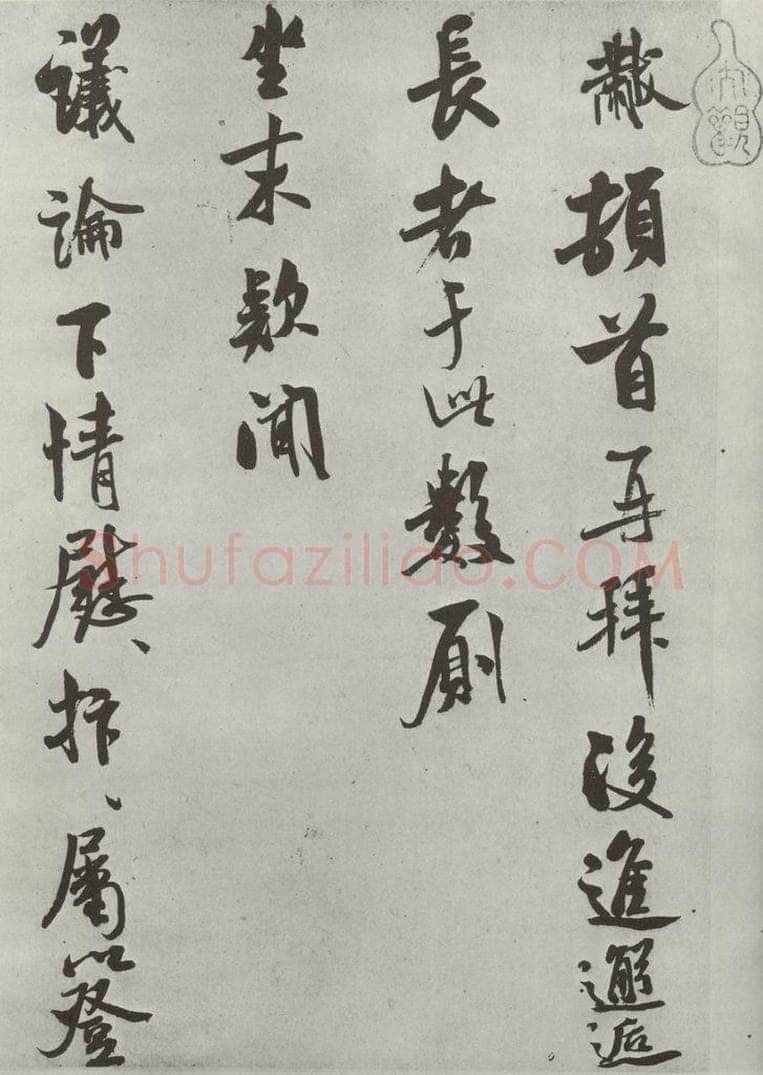 大觀
黻頓首再拜後進邂逅
長者于此數廁
坐末款聞
議論下情慰、抃、屬以登
Shufaziliao.COM